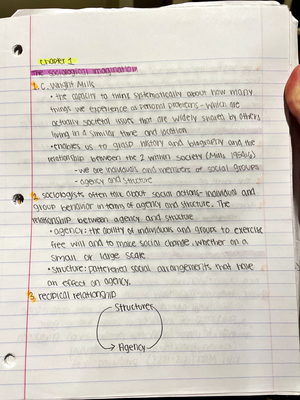 Chapter 1
The sociological imagination
1. C. Wright Mills
• the capacity to think systematically about how many
things we experience as personal problems - which are
actually societal issues that are widely shared by others
living in a similar time and location
• enables us to grasp history and biography and the
relationship between the 2 within society (Mills 1959:6)
- we are individuals and members of social groups
- agency and structure
2. sociologists often talk about social actions - individual and
group behavior in terms of agency and structure. The
relationship between agency and structure
• agency: the ability of individuals and groups to exercise
free will and to make social change, whether on a
small or large scale
• structure: patterned social arrangements that have
an effect on agency.
3. recipical relationship
Structures
Agency